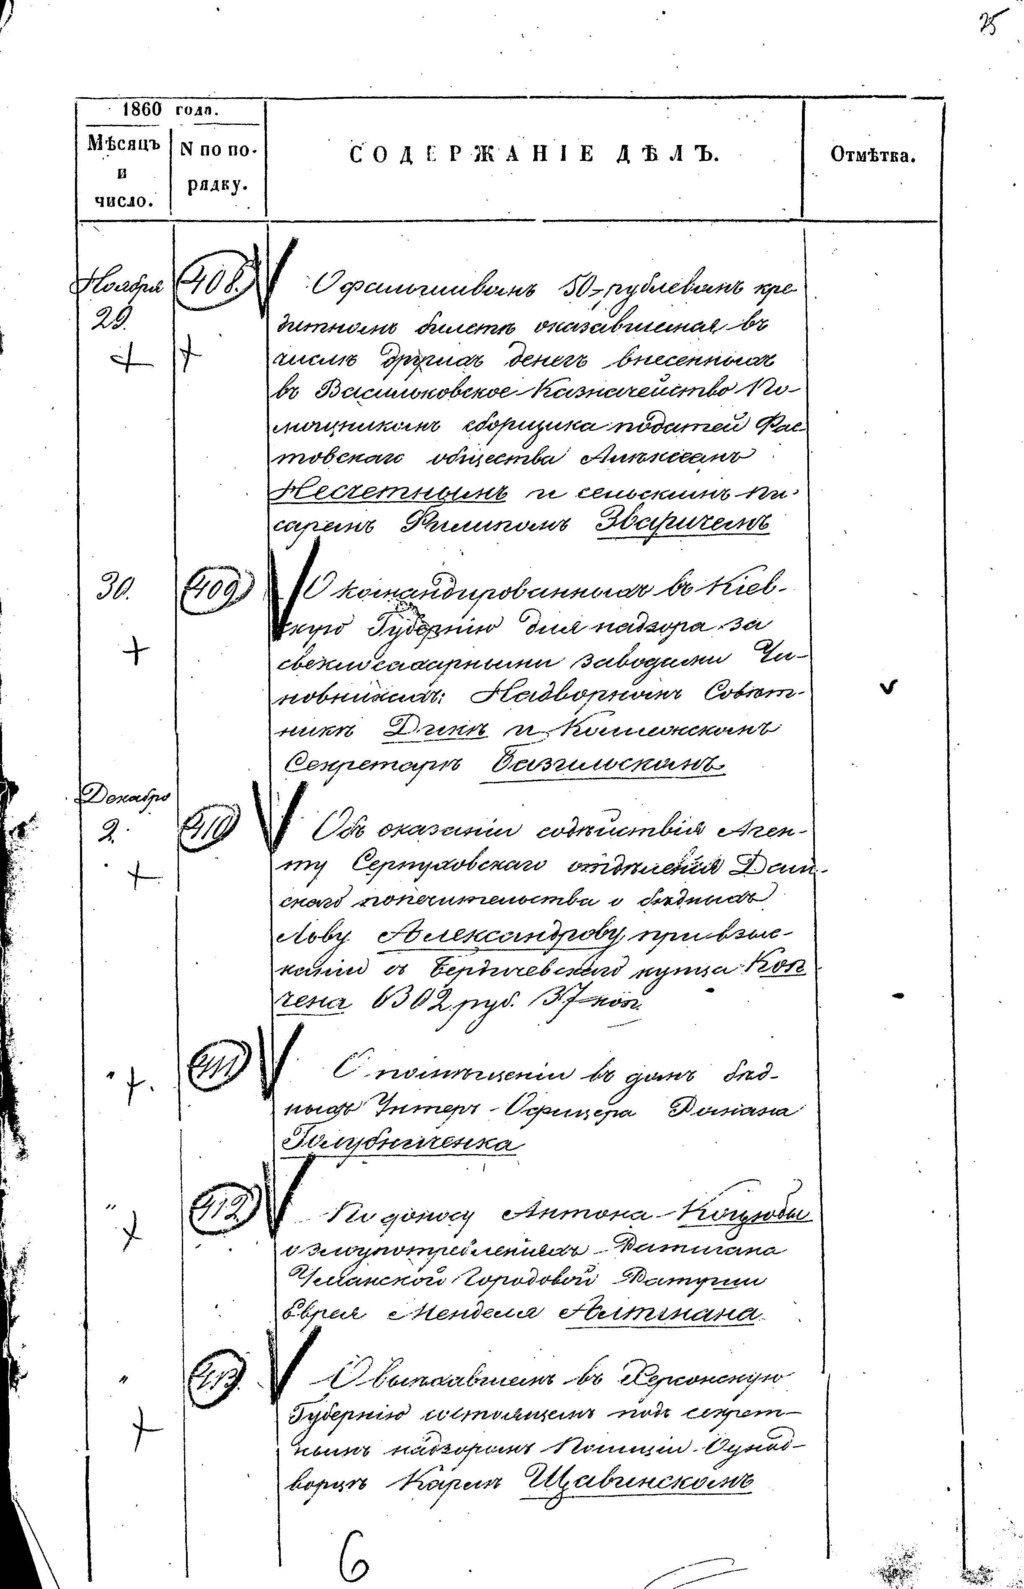 25
1860 года.
Мѣсяцъ и число.
N по порядку.
СОДЕРЖАНІЕ ДѢЛЪ.
Отмѣтка.
Ноября 29.
408.
О фальшивомъ 50-рублевомъ кре-
дитномъ билетѣ оказавшемся въ
числѣ другихъ денегъ внесенныхъ
въ Васильковское Казначейство По-
мощникомъ сборщика податей Фас-
товскаго общества Алексѣемъ
Несчетнымъ и сельскимъ Пи-
саремъ Филипомъ Зваричемъ
30.
409
О командированныхъ въ Кіев-
скую Губернію для надзора за
свеклосахарными заводами Чи-
новникахъ: Надворномъ Совѣт-
никѣ Дикѣ и Коллежскомъ
Секретарѣ Базилискомъ.
Декабрь
2.
410
Объ оказаніи содѣйствія Аген-
ту Серпуховскаго отдѣленія Дам-
скаго попечительства о бѣдныхъ
Льву Александрову, при взыс-
каніи съ Бердичевскаго купца Коп
чена 6302 руб. 37 коп.
"
411
О помѣщеніи въ домъ бѣд-
ныхъ Унтеръ-Офицера Романа
Голубниченка
"
412
По доносу Антона Коцюбы
о злоупотребленіяхъ Ратмана
Уманской Городовой Ратуши
Еврея Менделя Алтмана.
"
413.
О выѣхавшемъ въ Херсонскую
Губернію состоящемъ подъ секрет-
нымъ надзоромъ Полиціи Однод-
ворцѣ Карлѣ Щавинскомъ
6